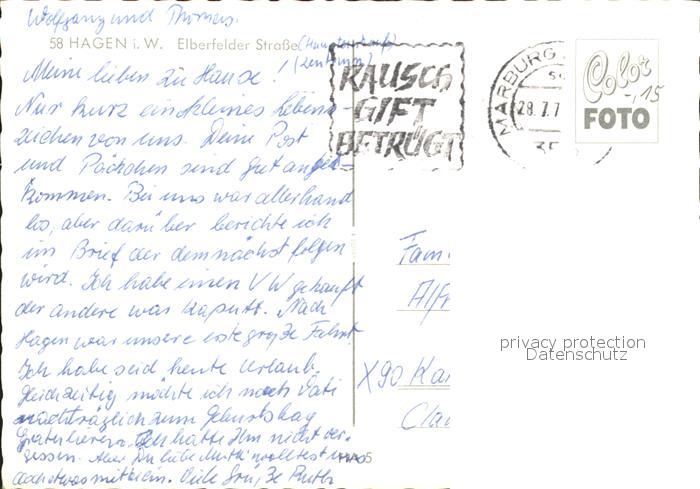 Wolfgang und Thomas.
58 HAGEN i. W. Elberfelder Straße
(Zentrum)
Meine lieben zu Hause!
Nur kurz ein kleines Lebens-
zeichen von uns. Deine Post
und Päckchen sind gut ange-
kommen. Bei uns war allerhand
los, aber darüber berichte ich
im Brief der demnächst folgen
wird. Ich habe einen VW gekauft
der andere war kaputt. Nach
Hagen war unsere erste große Fahrt.
Ich habe seid heute Urlaub.
Gleichzeitig möchte ich noch Vati
nachträglich zum Geburtstag
gratulieren. Ich hatte Ihn nicht ver-
gessen. Aber Du liebe Mutti wolltest uns
doch etwas mitteilen. Viele Grüße Ruth
RAUSCH
GIFT
BETRÜGT
MARBURG
28.7.7
355
Color
-,15
FOTO
Fam
Alfr
X90 Kar
Clau
privacy protection
Datenschutz